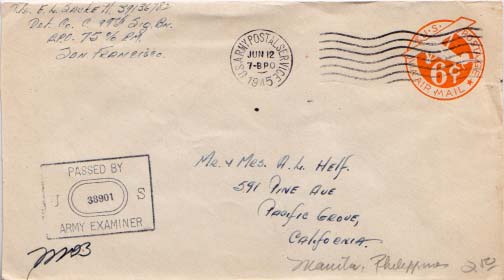 E. W.
Det. Co. C. 99th Sig. Bn.
A.P.O. 75 % P.M.
San Francisco.
U.S. ARMY POSTAL SERVICE
JUN 12
7-8PO
1945
U.S. POSTAGE
6¢
VIA AIR MAIL
PASSED BY
U 38901 S
ARMY EXAMINER
Mr. & Mrs. A. L. Helf.
591 Pine Ave
Pacific Grove,
California.
Manila, Philippines 2.50